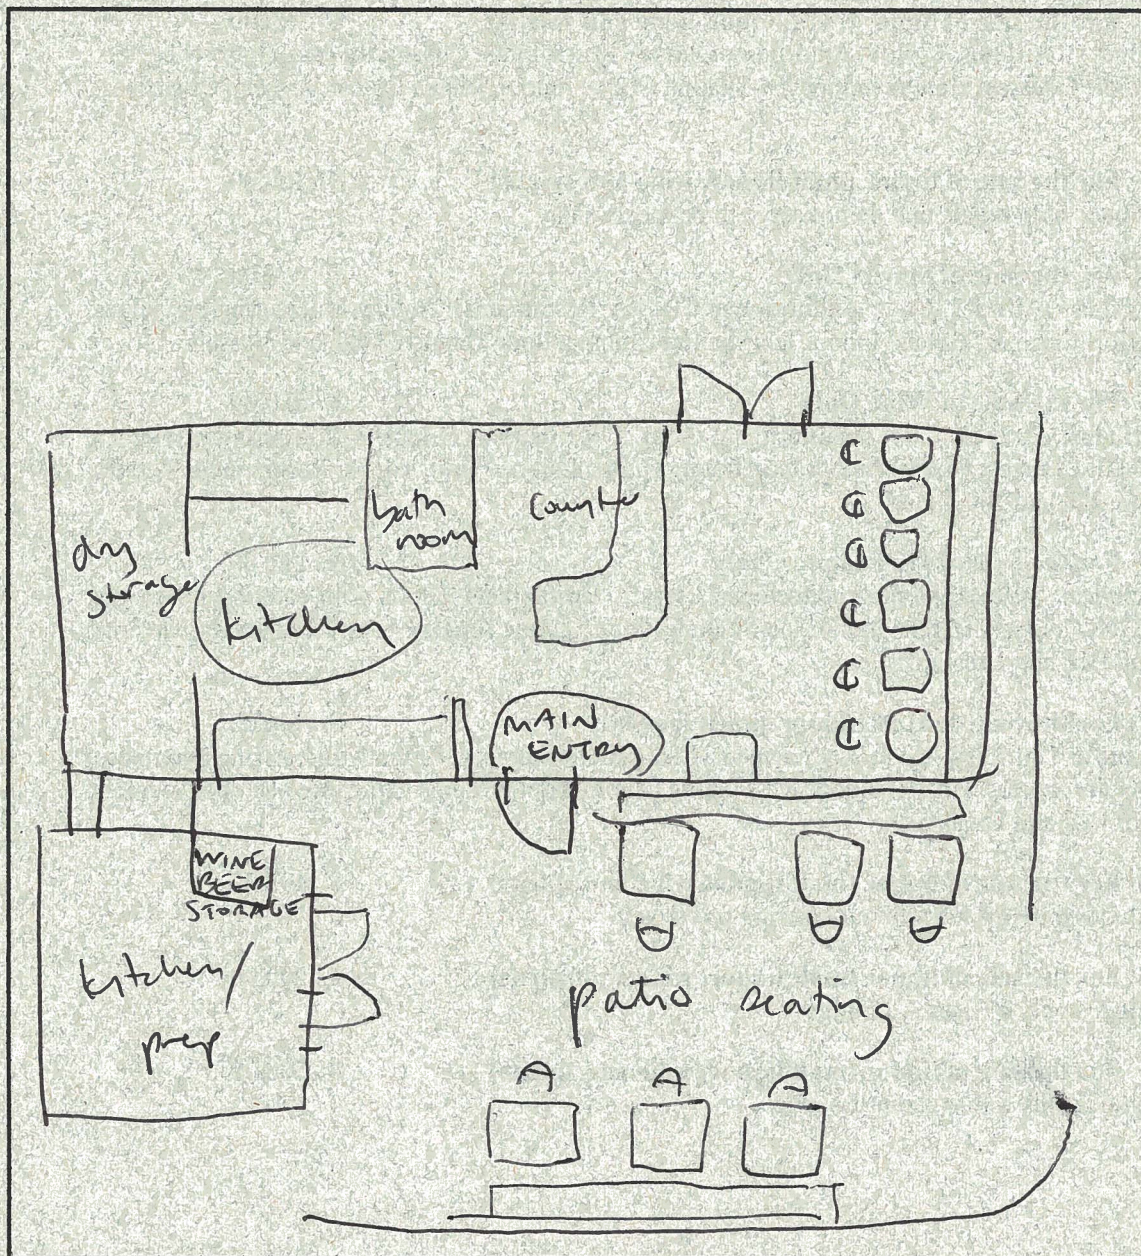 dry
storage
bath
room
counter
kitchen
MAIN
ENTRY
WINE
BEER
STORAGE
kitchen/
prep
patio seating